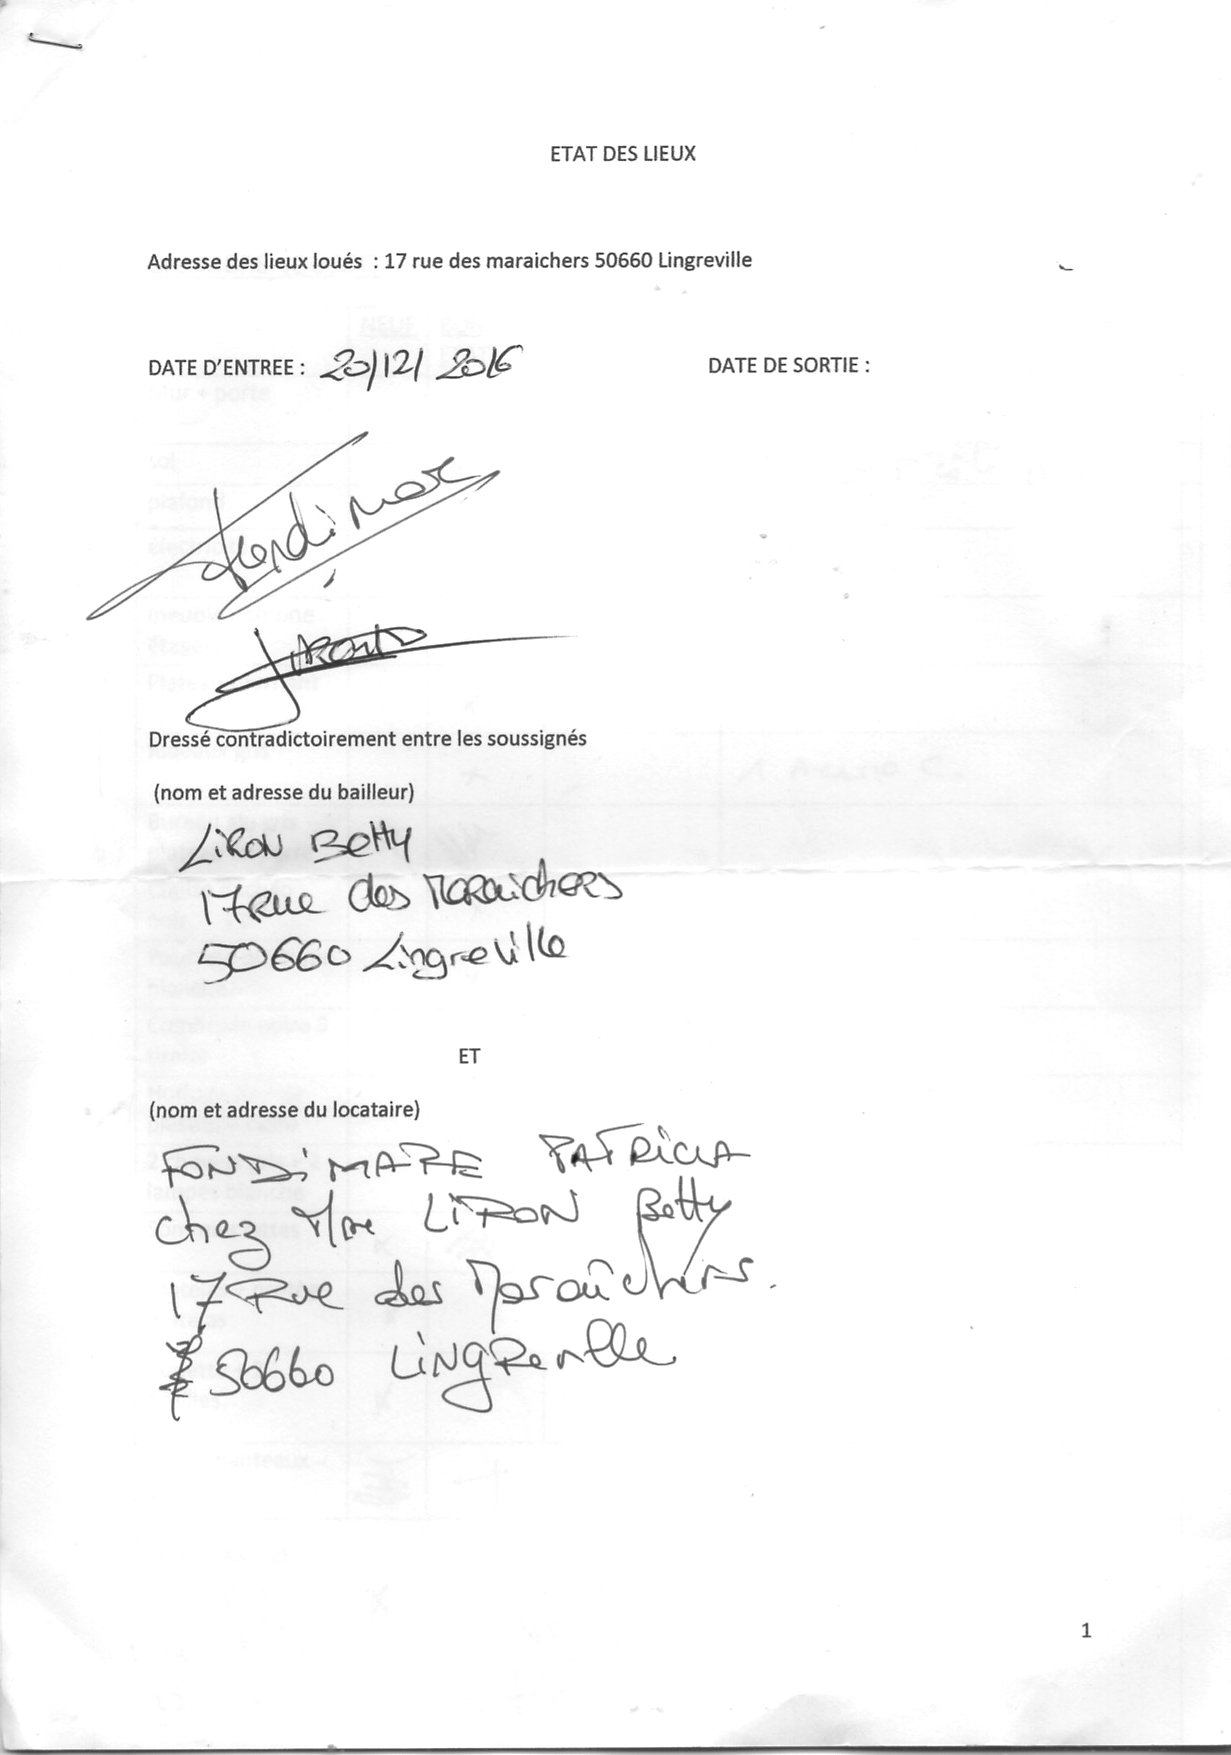 ETAT DES LIEUX
Adresse des lieux loués : 17 rue des maraichers 50660 Lingreville
DATE D'ENTREE : 20/12/2016 DATE DE SORTIE :
Dressé contradictoirement entre les soussignés
(nom et adresse du bailleur)
LiRON Betty
17 Rue des MaRaichERS
50660 Lingreville
ET
(nom et adresse du locataire)
FONDiMARE PATRiCiA
chez Mme LiRON Betty
17 Rue des Maraîchers.
50660 LiNGReville
1